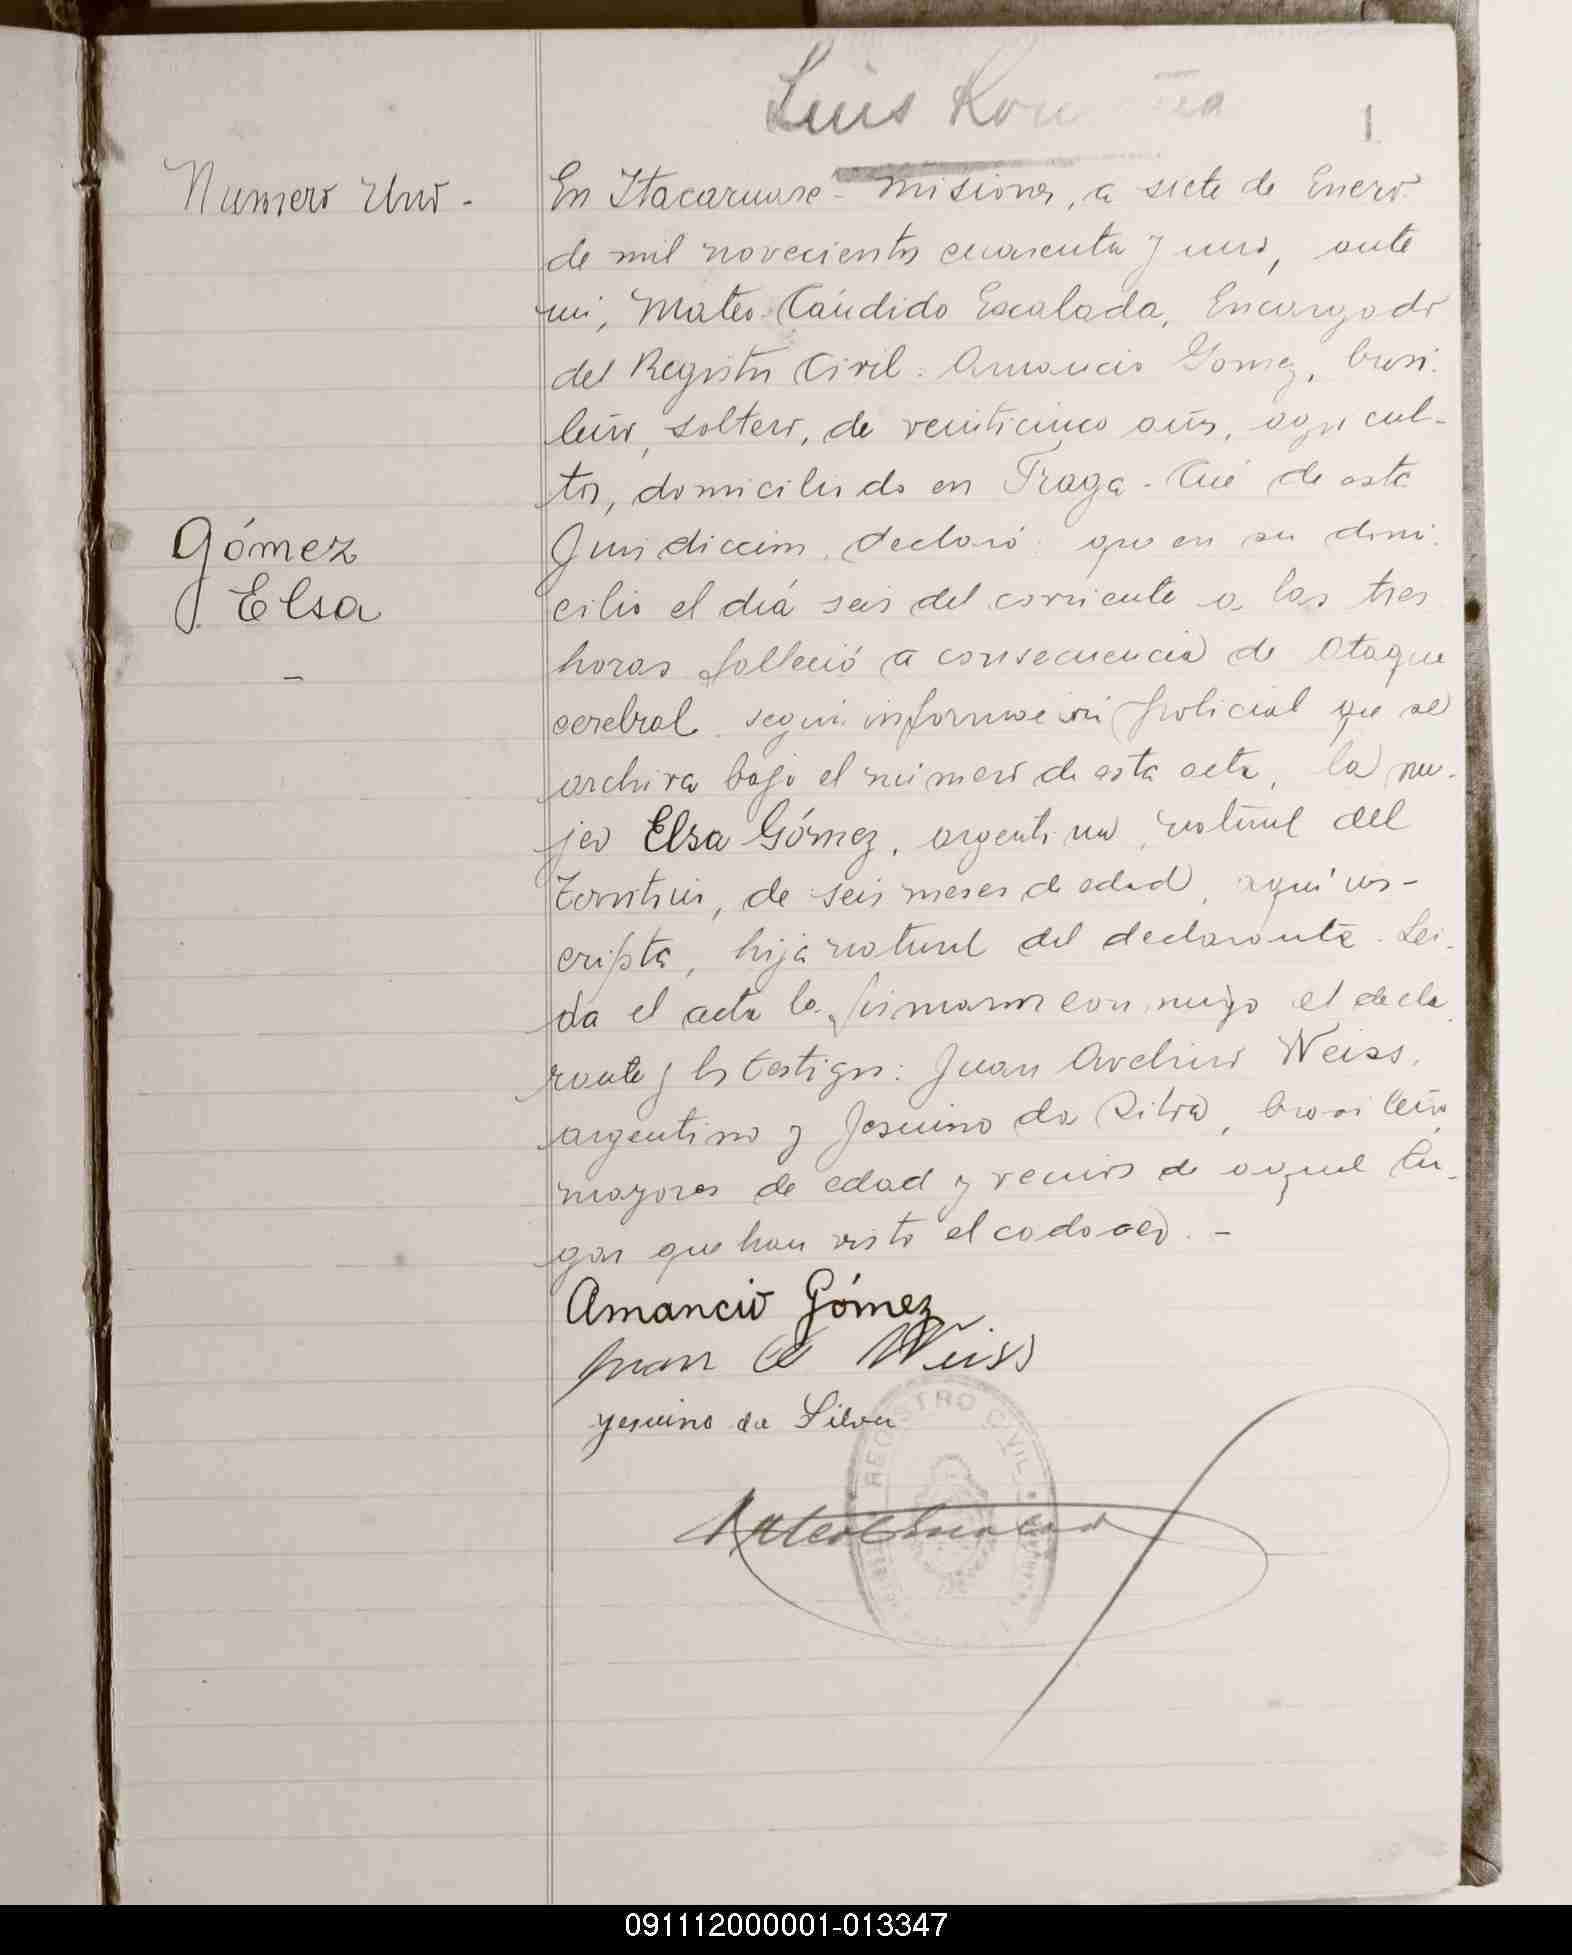 Luis
1
Numero Uno.-
En Itacaruare - Misiones, a siete de Enero
de mil novecientos cuarenta y uno, ante
mi, Mateo Cándido Escalada, Encargado
del Registro Civil: Amancio Gomez, brasi-
leño, soltero, de veinticinco años, agricul-
tor, domiciliado en Fraga-Cué de esta
Gómez
Elsa
-
Jurisdiccion, declaró que en su domi-
cilio el diá seis del corriente a las tres
horas falleció a consecuencia de ataque
cerebral segun informacion policial que se
archiva bajo el número de esta acta, la mu-
jer Elsa Gómez, argentina, natural del
Territorio, de seis meses de edad, aquí ins-
cripta, hija natural del declarante. Lei-
da el acta la firmaron conmigo el decla-
rante y los testigos: Juan Avelino Weiss,
argentino y Jesuino da Silva, brasileño,
mayores de edad y vecinos de aquel lu-
gar que han visto el cadaver. -
Amancio Gómez
Juan A Weiss
yesuino da Silva
REGISTRO CIVIL
091112000001-013347